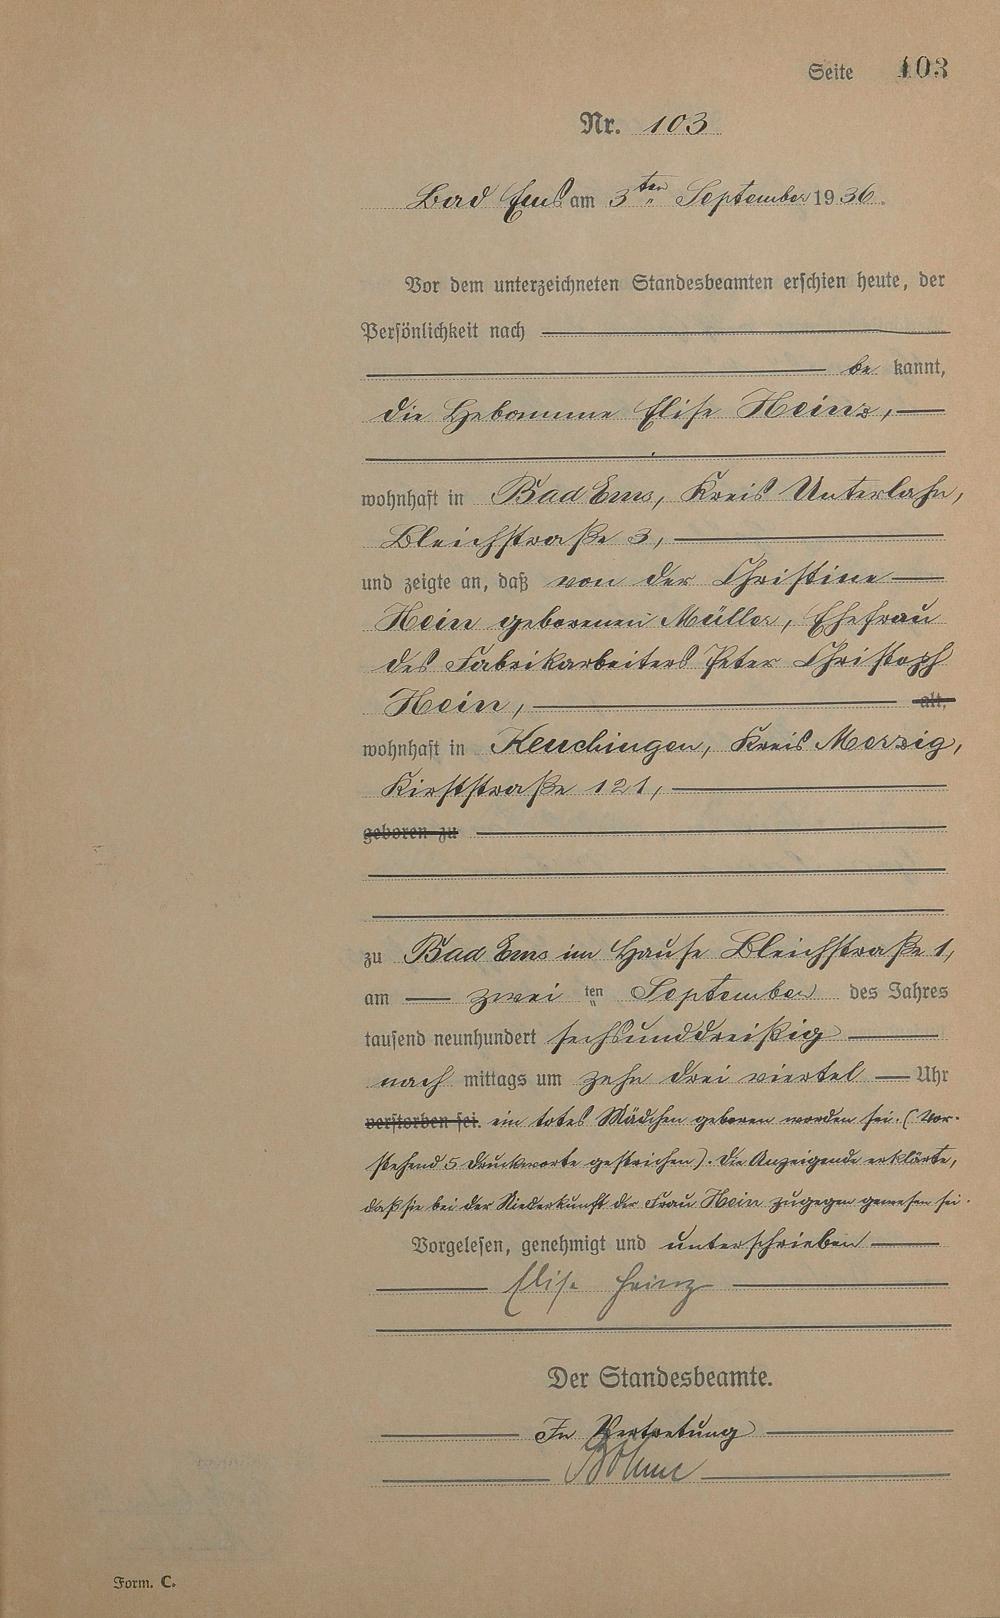 Seite 103
Nr. 103
Bad Ems am 3ten September 1936.
Vor dem unterzeichneten Standesbeamten erschien heute, der
Persönlichkeit nach
be kannt,
die Hebamme Elise Heinz,
wohnhaft in Bad Ems, Kreis Unterlahn,
Bleichstraße 3,
und zeigte an, daß von der Christine
Hein geborenen Müller, Ehefrau
des Fabrikarbeiters Peter Christoph
Hein, alt,
wohnhaft in Keuchingen, Kreis Merzig,
121,
geboren zu
zu Bad Ems im Hause Bleichstraße 1,
am zwei ten September des Jahres
tausend neunhundert sechsunddreißig
nach mittags um zehn drei viertel Uhr
verstorben sei. ein totes Mädchen geboren worden sei. (Vor-
stehend 5 Druckworte gestrichen). Die Anzeigende erklärte,
daß sie bei der Niederkunft der Frau Hein zugegen gewesen sei.
Vorgelesen, genehmigt und unterschrieben
Elise Heinz
Der Standesbeamte.
In Vertretung
Böhme
Form. C.